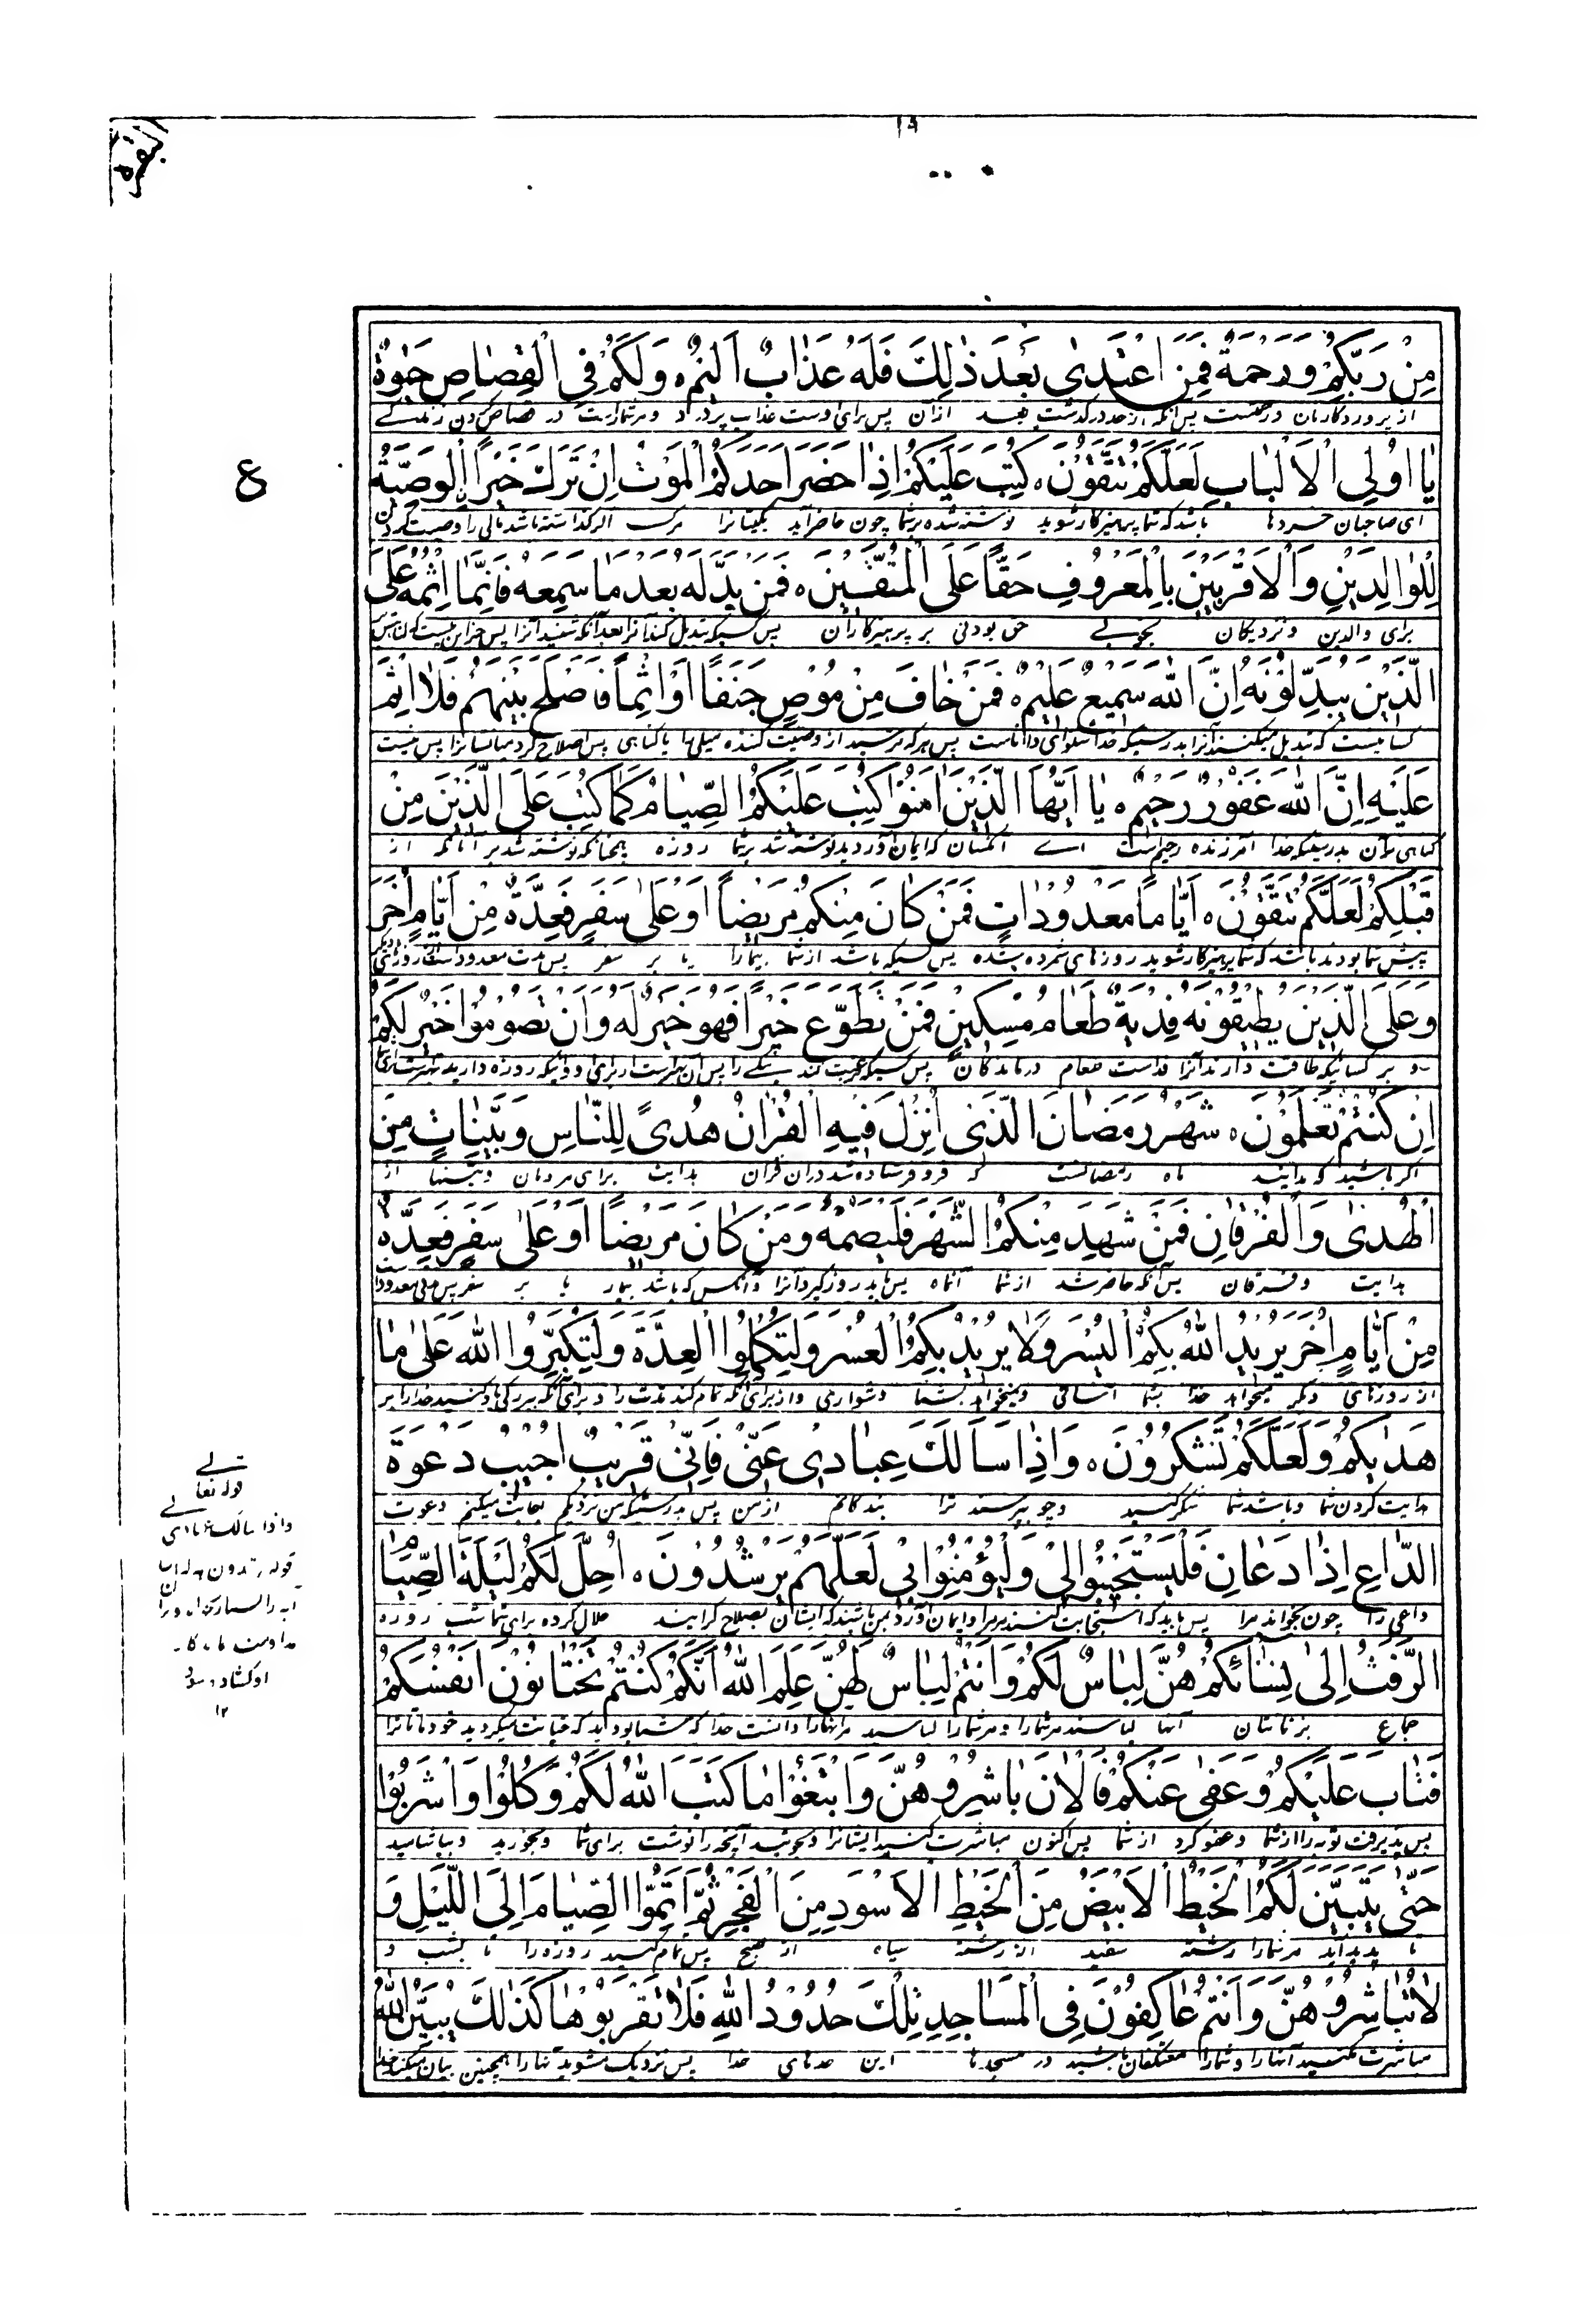 البقره
١٩
مِنْ رَبِّكُمْ وَرَحْمَةٌ فَمَنِ اعْتَدٰى بَعْدَ ذٰلِكَ فَلَهُ عَذٰابٌ اَلٖيمٌ ه وَلَكُمْ فِى الْقِصٰاصِ حَيٰوةٌ
از پروردگارتان و رحمتست پس آنکه از حد درگذشت بعد از آن پس برای اوست عذاب پردرد و مرشماراست در قصاص کردن زندگی
يٰا اُولِى الْاَلْبٰابِ لَعَلَّكُمْ تَتَّقُوْنَ ه كُتِبَ عَلَيْكُمْ اِذٰا حَضَرَ اَحَدَكُمُ الْمَوْتُ اِنْ تَرَكَ خَيْرًا اِلْوَصِيَّةُ
ای صاحبان خردها باشد که شما پرهیزکار شوید نوشته شده برشما چون حاضر آید یکیتانرا مرگ اگر گذاشته باشد مالی را وصیت کردن
ع
لِلْوٰالِدَيْنِ وَالْاَقْرَبِيْنَ بِالْمَعْرُوفِ حَقًّا عَلَى الْمُتَّقٖيْنَ ه فَمَنْ بَدَّلَهُ بَعْدَ مٰا سَمِعَهُ فَاِنَّمٰا اِثْمُهُ عَلَى
برای والدین و نزدیکان بخوبی حق بودنی بر پرهیزکاران پس کسیکه تبدیل کند آنرا بعد آنکه شنید آنرا پس جز این نیست که گناهش
الَّذٖيْنَ يُبَدِّلُوْنَهُ اِنَّ اللّٰهَ سَمٖيعٌ عَلٖيمٌ ه فَمَنْ خٰافَ مِنْ مُوْصٍ جَنَفًا اَوْ اِثْمًا فَاَصْلَحَ بَيْنَهُمْ فَلٰا اِثْمَ
کسانیست که تبدیل میکنند آنرا بدرستیکه خدا شنوای داناست پس هرکه ترسید از وصیت کننده میلی را یا گناهی پس اصلاح کرد میانشانرا پس نیست
عَلَيْهِ اِنَّ اللّٰهَ غَفُوْرٌ رَحٖيمٌ ه يٰا اَيُّهَا الَّذٖيْنَ اٰمَنُوْا كُتِبَ عَلَيْكُمُ الصِّيٰامُ كَمٰا كُتِبَ عَلَى الَّذٖيْنَ مِنْ
گناهی بر آن بدرستیکه خدا آمرزنده رحیم است ای آنکسان که ایمان آوردید نوشته شد برشما روزه همچنانکه نوشته شد بر آنانکه از
قَبْلِكُمْ لَعَلَّكُمْ تَتَّقُوْنَ ه اَيّٰامًا مَعْدُودٰاتٍ فَمَنْ كٰانَ مِنْكُمْ مَرٖيضًا اَوْ عَلٰى سَفَرٍ فَعِدَّةٌ مِنْ اَيّٰامٍ اُخَرَ
پیش شما بودند باشد که شما پرهیزکار شوید روزهای شمرده شده پس کسیکه باشد از شما بیمار یا بر سفر پس مدت معدود است از روزهای دیگر
وَعَلَى الَّذٖيْنَ يُطٖيقُونَهُ فِدْيَةٌ طَعٰامُ مِسْكٖينٍ فَمَنْ تَطَوَّعَ خَيْرًا فَهُوَ خَيْرٌ لَهُ وَاَنْ تَصُومُوْا خَيْرٌ لَكُمْ
و بر کسانیکه طاقت دارند آنرا فداست طعام درماندگان پس کسیکه رغبت کند نیکی را پس آن بهتر است از برای او و اینکه روزه دارید بهتر است برای شما
اِنْ كُنْتُمْ تَعْلَمُوْنَ ه شَهْرُ رَمَضٰانَ الَّذٖى اُنْزِلَ فٖيهِ الْقُرْاٰنُ هُدًى لِلنّٰاسِ وَبَيِّنٰاتٍ مِنَ
اگر باشید که بدانید ماه رمضانست که فرو فرستاده شد در آن قرآن هدایت برای مردمان و بینها از
الْهُدٰى وَالْفُرْقٰانِ فَمَنْ شَهِدَ مِنْكُمُ الشَّهْرَ فَلْيَصُمْهُ وَمَنْ كٰانَ مَرٖيضًا اَوْ عَلٰى سَفَرٍ فَعِدَّةٌ
هدایت و فرقان پس آنکه حاضر شد از شما آنماه پس باید روزه گیرد آنرا و آنکس که باشد بیمار یا بر سفر پس مدتی معدود است
مِنْ اَيّٰامٍ اُخَرَ يُرٖيدُ اللّٰهُ بِكُمُ الْيُسْرَ وَلٰا يُرٖيدُ بِكُمُ الْعُسْرَ وَلِتُكْمِلُوا الْعِدَّةَ وَلِتُكَبِّرُوا اللّٰهَ عَلٰى مٰا
از روزهای دیگر میخواهد خدا بشما آسانی و نمیخواهد بشما دشواری و از برای آنکه تمام کند مدت را و برای آنکه بزرگی یاد کنید خدا را بر
هَدٰيكُمْ وَلَعَلَّكُمْ تَشْكُرُوْنَ ه وَاِذٰا سَاَلَكَ عِبٰادٖى عَنّٖى فَاِنّٖى قَرٖيبٌ اُجٖيبُ دَعْوَةَ
هدایت کردن شما و باشد شما شکر کنید و چو بپرسند ترا بندگانم از من پس بدرستیکه من نزدیکم اجابت میکنم دعوت
الدّٰاعِ اِذٰا دَعٰانِ فَلْيَسْتَجٖيبُوْالٖى وَلْيُؤْمِنُوْابٖى لَعَلَّهُمْ يَرْشُدُوْنَ ه اُحِلَّ لَكُمْ لَيْلَةَ الصِّيٰامِ
داعی را چون بخواند مرا پس باید که استجابت کنند مر مرا و ایمان آورد بمن باشند که ایشان بصلاح گرایند حلال کرده برای شما شب روزه
الرَّفَثُ اِلٰى نِسٰائِكُمْ هُنَّ لِبٰاسٌ لَكُمْ وَاَنْتُمْ لِبٰاسٌ لَهُنَّ عَلِمَ اللّٰهُ اَنَّكُمْ كُنْتُمْ تَخْتٰانُوْنَ اَنْفُسَكُمْ
جماع بزنانتان آنها لباسند مرشمارا و مرشمارا لباسید مر آنها را دانست خدا که شما بودید که خیانت میکردید خودهاتانرا
فَتٰابَ عَلَيْكُمْ وَعَفٰى عَنْكُمْ فَالْاٰنَ بٰاشِرُوهُنَّ وَابْتَغُوْا مٰا كَتَبَ اللّٰهُ لَكُمْ وَكُلُوْا وَاشْرَبُوْا
پس پذیرفت توبه را از شما و عفو کرد از شما پس اکنون مباشرت کنید ایشانرا و بجوئید آنچه را نوشت برای شما و بخورید و بیاشامید
حَتّٰى يَتَبَيَّنَ لَكُمُ الْخَيْطُ الْاَبْيَضُ مِنَ الْخَيْطِ الْاَسْوَدِ مِنَ الْفَجْرِ ثُمَّ اَتِمُّوا الصِّيٰامَ اِلَى اللَّيْلِ وَ
تا پدید آید مرشمارا رشته سفید از رشته سیاه از صبح پس تمام کنید روزه را تا بشب و
لٰا تُبٰاشِرُوْهُنَّ وَاَنْتُمْ عٰاكِفُوْنَ فِى الْمَسٰاجِدِ تِلْكَ حُدُوْدُ اللّٰهِ فَلٰا تَقْرَبُوْهٰا كَذٰلِكَ يُبَيِّنُ اللّٰهُ
مباشرت مکنید آنها را و شمارا معتکفان باشید در مسجدها این حدهای خدا پس نزدیک مشوید آنها را همچنین بیان میکند خدا
قوله تعالی
واذا سالک عبادی
١٢